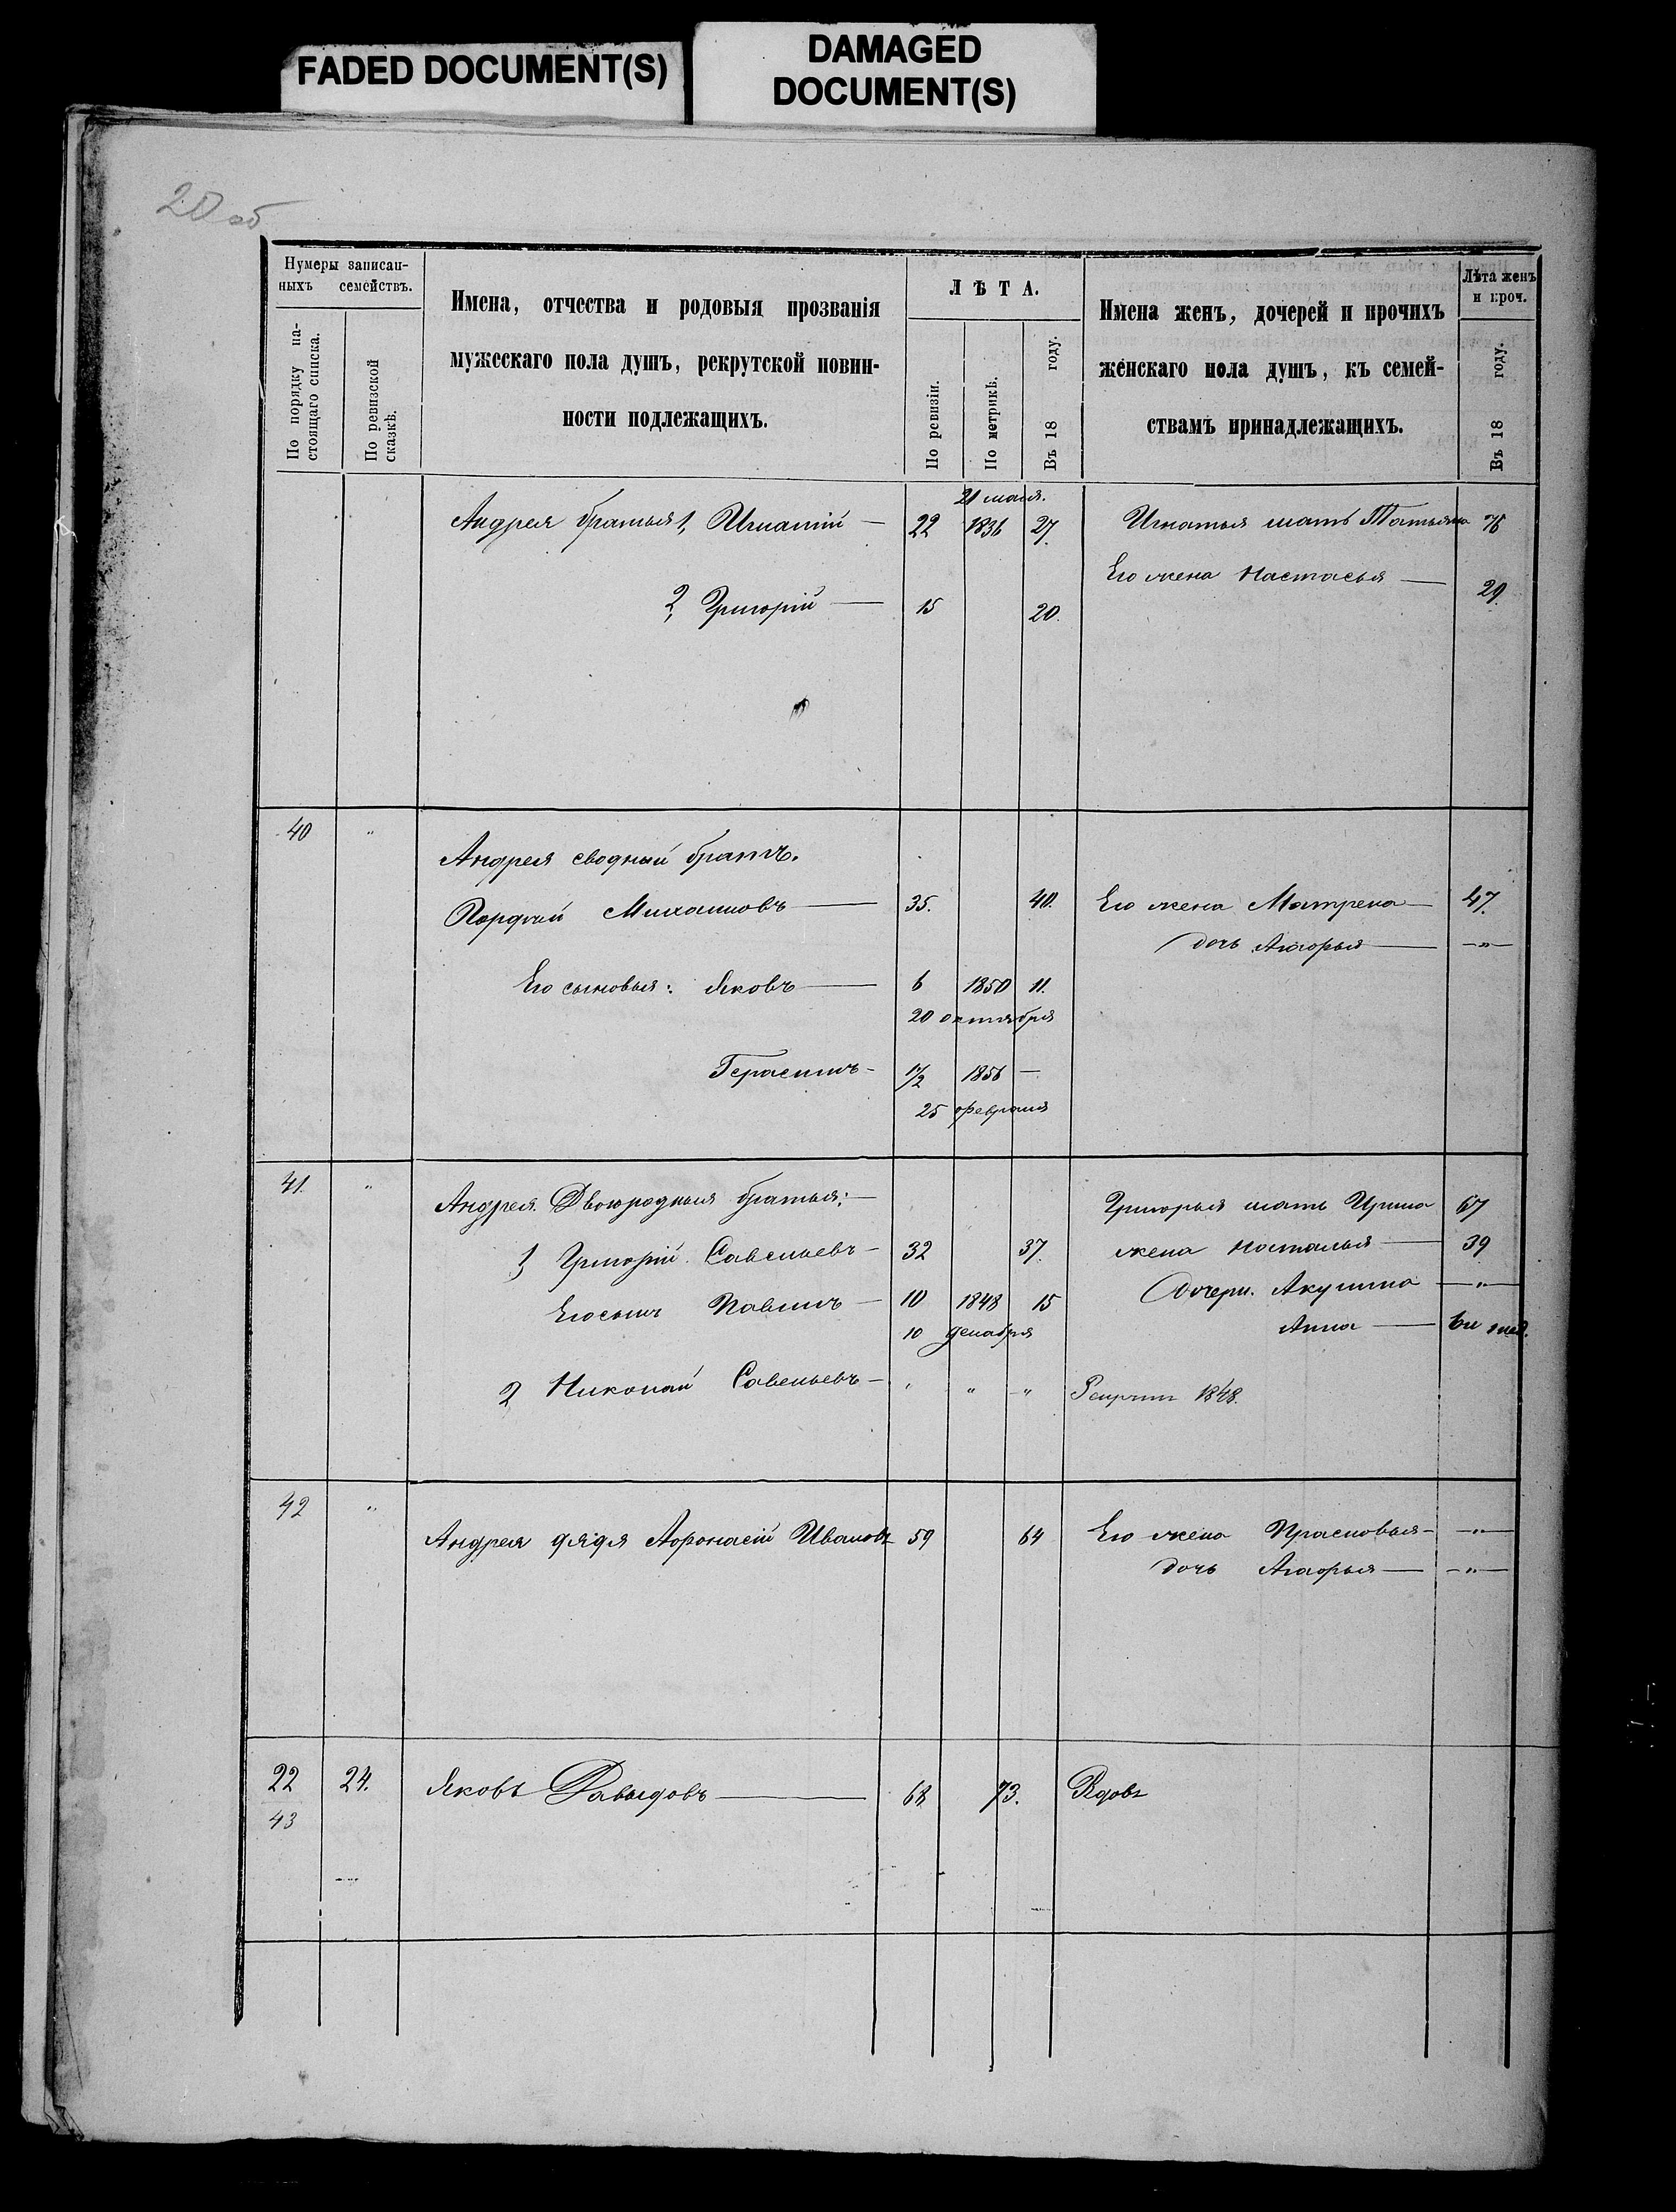 FADED DOCUMENT(S)
DAMAGED
DOCUMENT(S)
20 об
Нумеры записан-
ныхъ семействъ.
По порядку на-
стоящаго списка.
По ревизской
сказкѣ.
Имена, отчества и родовыя прозванія
мужескаго пола душъ, рекрутской повин-
ности подлежащихъ.
ЛѢТА.
По ревизіи.
По метрикѣ.
Въ 18 году.
Имена женъ, дочерей и прочихъ
женскаго пола душъ, къ семей-
ствамъ принадлежащихъ.
Лѣта женъ
и проч.
Въ 18 году.
21 мая.
Андрея братья 1, Игнатій — 22 1836 27. Игнатья мать Татьяна 76
Его жена Настасья — 29.
2, Григорій — 15 20.
40 "
Андрея сводный братъ.
Михаиловъ — 35. 40. Его жена Матрена — 47.
дочь — "
Его сыновья: Яковъ — 6 1850 11.
20 октября
Герасимъ — 1/2 1856 —
25 февраля
41. " Андрея Двоюродныя братья: — Григорья мать Ирина 67
1, Григорій Савельевъ — 32 37. жена Наталья — 39
Его сынъ — 10 1848 15 Дочери. Акулина — "
10 декабря
Анна — 6и нед.
2 Николай Савельевъ — " " " 1848.
42 "
Андрея дядя Афонасій Ивановъ 59 64 Его жена Прасковья — "
дочь — "
22 24. Яковъ Давыдовъ — 68 73. Вдовъ
43